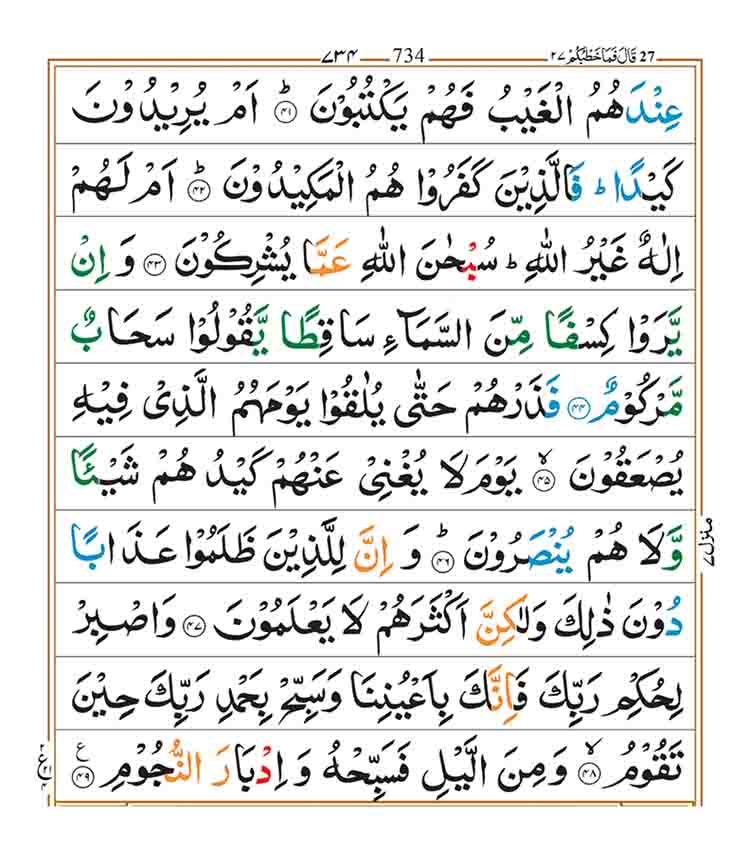 27 قَالَ فَمَا خَطْبُكُمْ ۲۷ 734 ۷۳۴
عِنْدَهُمُ الْغَيْبُ فَهُمْ يَكْتُبُوْنَ ؕ ۴۱ اَمْ يُرِيْدُوْنَ
كَيْدًا ؕ فَالَّذِيْنَ كَفَرُوْا هُمُ الْمَكِيْدُوْنَ ؕ ۴۲ اَمْ لَهُمْ
اِلٰهٌ غَيْرُ اللّٰهِ ؕ سُبْحٰنَ اللّٰهِ عَمَّا يُشْرِكُوْنَ ۴۳ وَ اِنْ
يَّرَوْا كِسْفًا مِّنَ السَّمَآءِ سَاقِطًا يَّقُوْلُوْا سَحَابٌ
مَّرْكُوْمٌ ۴۴ فَذَرْهُمْ حَتّٰى يُلٰقُوْا يَوْمَهُمُ الَّذِىْ فِيْهِ
يُصْعَقُوْنَ ۙ ۴۵ يَوْمَ لَا يُغْنِىْ عَنْهُمْ كَيْدُهُمْ شَيْـًٔا
وَّلَا هُمْ يُنْصَرُوْنَ ؕ ۴۶ وَ اِنَّ لِلَّذِيْنَ ظَلَمُوْا عَذَابًا
دُوْنَ ذٰلِكَ وَلٰكِنَّ اَكْثَرَهُمْ لَا يَعْلَمُوْنَ ۴۷ وَاصْبِرْ
لِحُكْمِ رَبِّكَ فَاِنَّكَ بِاَعْيُنِنَا وَسَبِّحْ بِحَمْدِ رَبِّكَ حِيْنَ
تَقُوْمُ ۙ ۴۸ وَمِنَ الَّيْلِ فَسَبِّحْهُ وَ اِدْبَارَ النُّجُوْمِ ۴۹ ع
منزل ۷